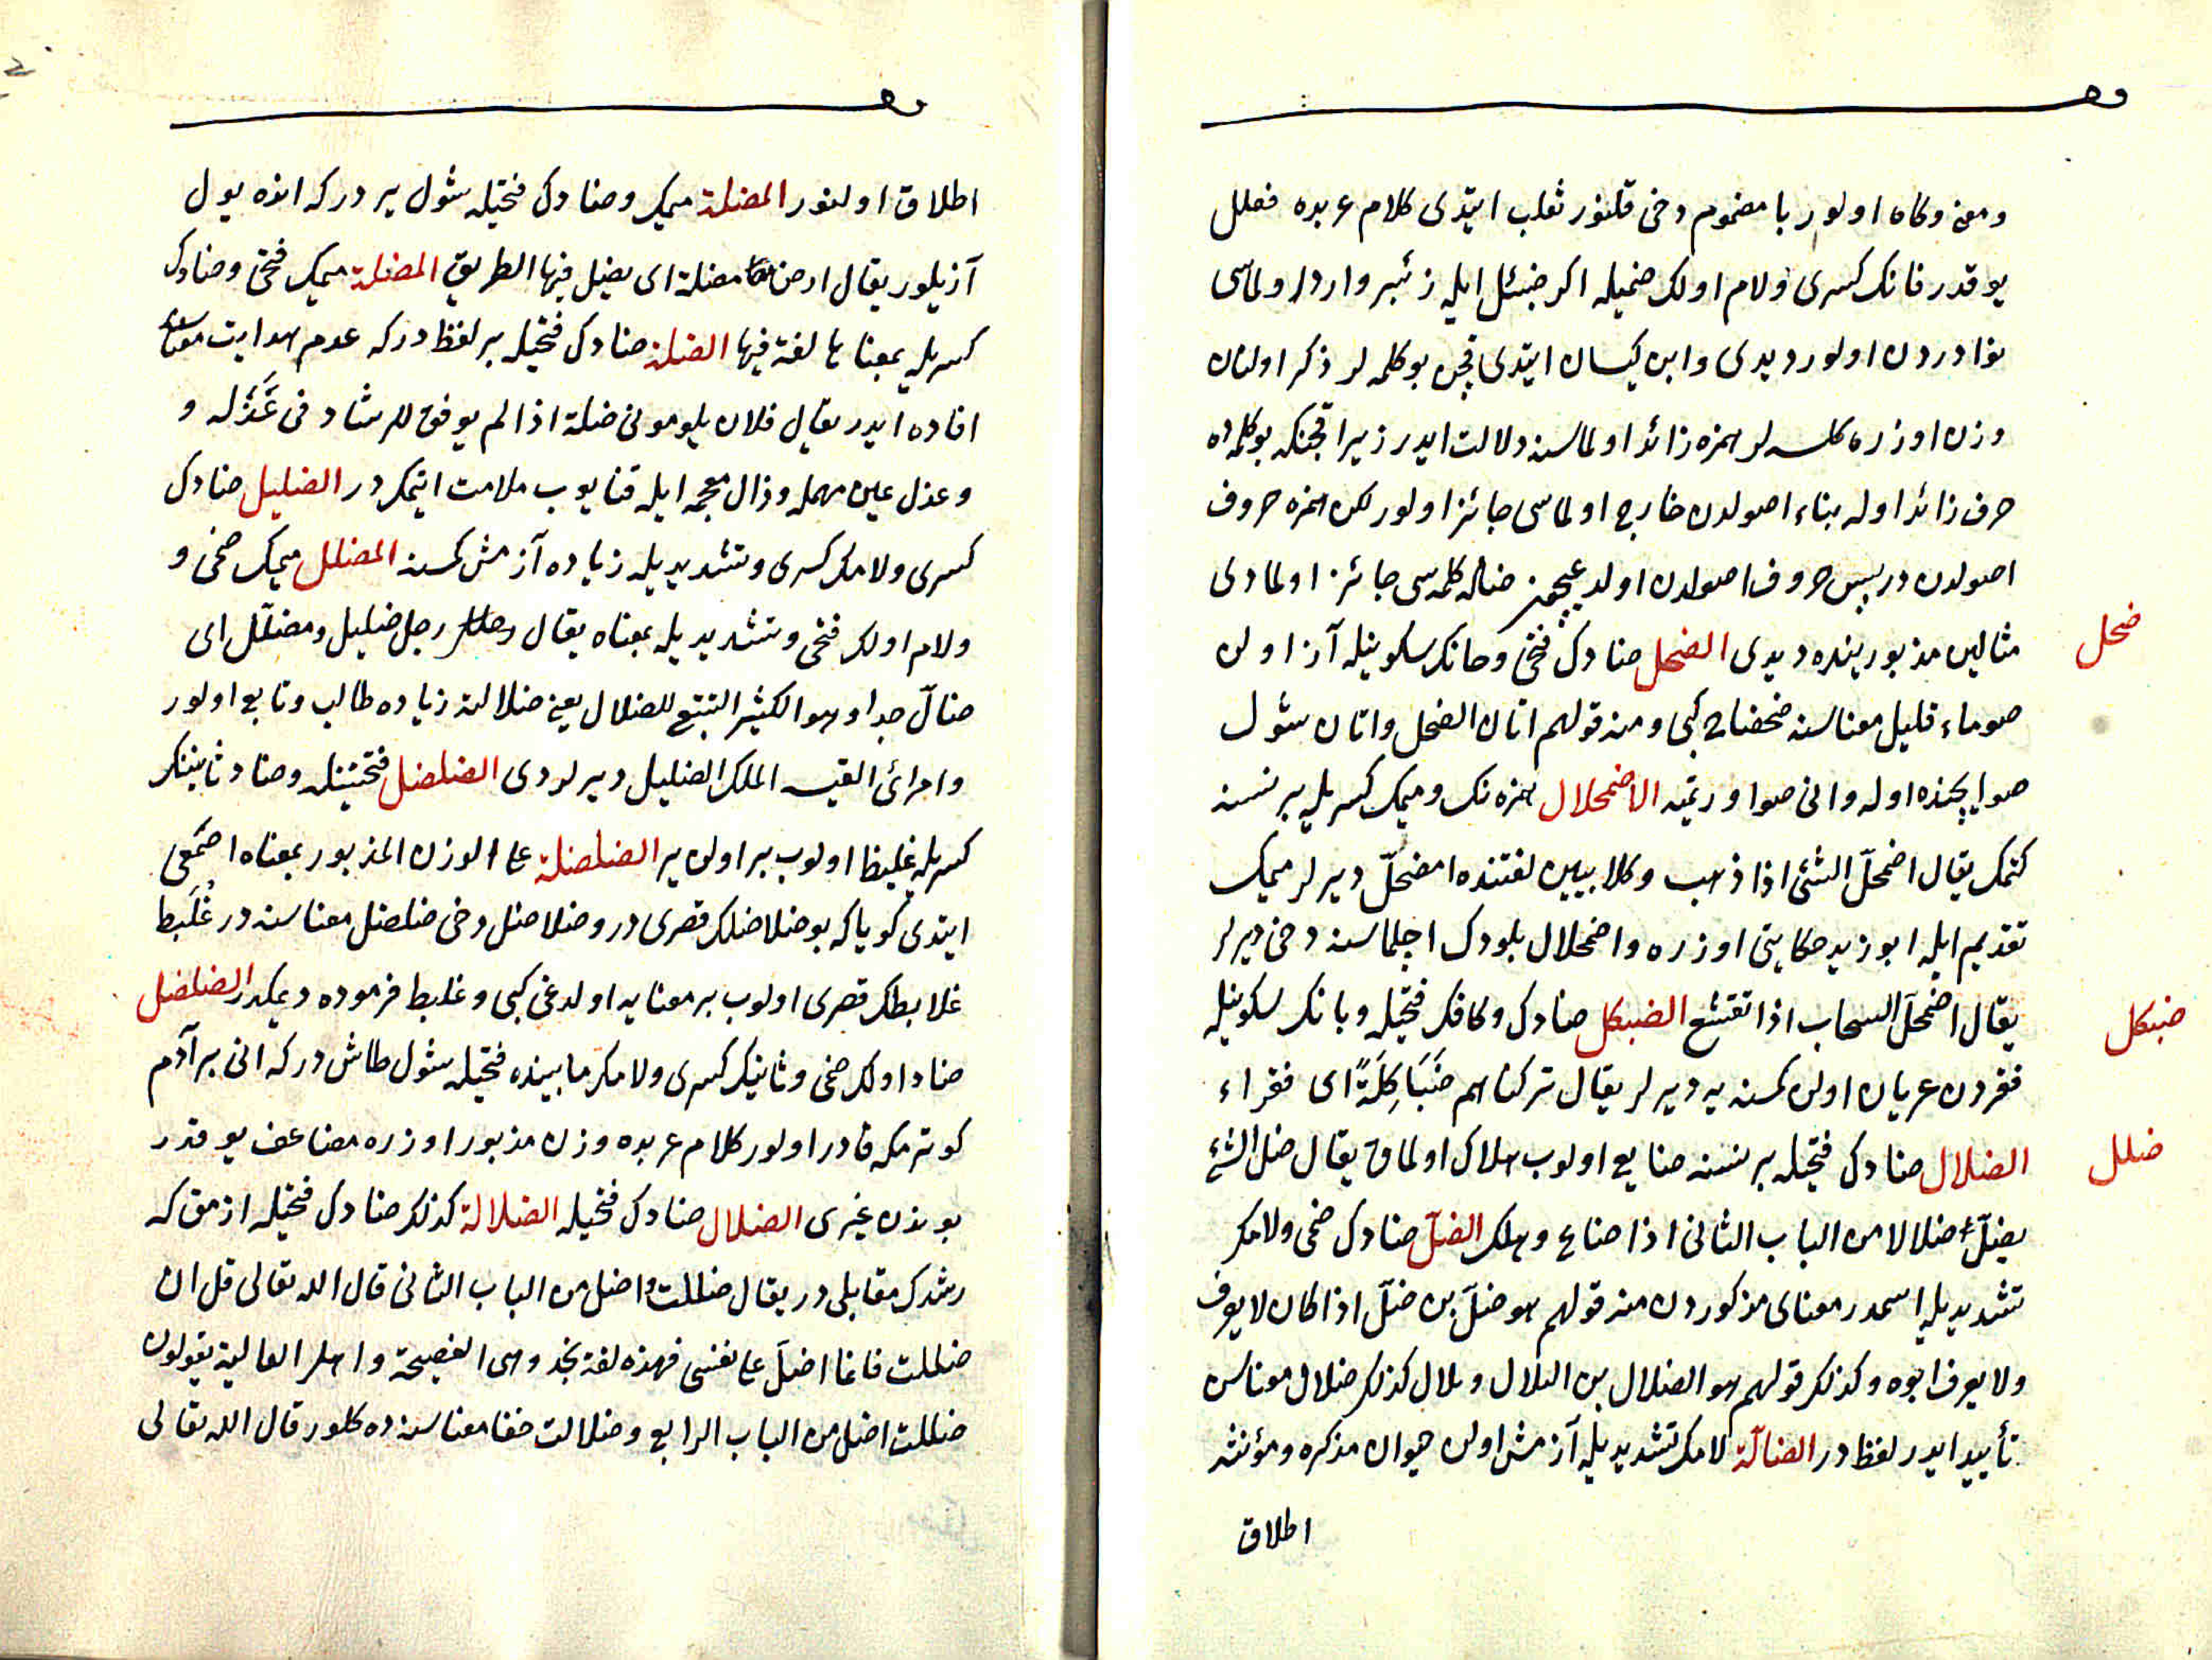 ومعز وكاه اولور با مضموم دخى قلنور ثعلب ايتدى كلام عربده فعلل
يوقدر فانك كسرى ولام اولك ضميله اكر ضئبل ايله زئبر وارد اولماسى
نوادردن اولور ديدى وابن كيسان ايتدى قچن بو كلمه لر ذكر اولنان
وزن اوزره كلسه لر همزه زائد اولماسنه دلالت ايدر زيرا قچنكه بو كلمه ده
حرف زائد اوله بناء اصولدن خارج اولماسى جائز اولور لكن همزه حروف
اصولدن در پس حروف اصولدن اولديغيچون ضاله كلمه سى جائز اولمادى
مثالين مذبورينده ديدى الضحل ضادك فتحى وحانك سكونيله آز اولن
ضحل
صو ماء قليل معناسنه ضحضاح كبى ومنه قولهم اتان الضحل واتان شول
صو ايچنده اوله وانى صو اورتميه الاضمحلال همزه نك وميمك كسريله بر نسنه
كتمك يقال اضمحلّ الشئ اذا ذهب وكلابيين لغتنده امضحلّ ديرلر ميمك
تقديم ايله ابو زيد حكايتى اوزره واضمحلال بلودك اچلماسنه دخى ديرلر
يقال اضمحلّ السحاب اذا تقشع الضبكل ضادك وكافك فتحيله وبانك سكونيله
ضبكل
فقردن عريان اولن كمسنه يه ديرلر يقال تركناهم ضَبَاكِلَةً اى فقراء
الضلال ضادك فتحيله بر نسنه ضايع اولوب هلاك اولماق يقال ضل الشئ
ضلل
يضلّ ضلالا من الباب الثانى اذا ضاع وهلك الضلّ ضادك ضمى ولامك
تشديديله اسمدر معناى مذكوردن منه قولهم هو ضلّ بن ضلّ اذا كان لا يعرف
ولا يعرف ابوه وكذلك قولهم هو الضلال بن التلال وتلال كذلك ضلال معناسن
تأييد ايدر لفظدر الضالّة لامك تشديديله آزمش اولن حيوان مذكره ومؤنثه
اطلاق
اطلاق اولنور المضلة ميمك وضادك فتحيله شول يردركه انده يول
آزيلور يقال ارض مضلة اى يضل فيها الطريق المضلة ميمك فتحى وضادك
كسريله بمعناها لغة فيها الضلة ضادك فتحيله بر لفظدركه عدم هدايت معناسنى
افاده ايدر يقال فلان يلومونى ضلة اذا لم يوفق للرشاد فى عَذْله و
وعذل عين مهمله وذال معجمه ايله قنايوب ملامت ايتمكدر الضليل ضادك
كسرى ولامك كسرى وتشديديله زياده آزمش كمسنه المضلل ميمك ضمى و
ولام اولك فتحى وتشديديله بمعناه يقال رجل ضليل ومضلّل اى
ضالّ جدا وهو الكثير التتبع للضلال يعنى ضلالته زياده طالب وتابع اولور
وامرائ القيسه الملك الضليل ديرلردى الضلضل فتحتينله وضاد ثانينك
كسريله غليظ اولوب بر اولن ير الضلضلة على الوزن المذبور بمعناه اصمعى
ايتدى كوياكه بو ضلاضلك قصرى در وضلاضل دخى ضلضل معناسنه در عُلَبط
علابطك قصرى اولوب بر معنايه اولدغى كبى وعلبط فرموده ديمكدر الضلضل
ضاد اولك ضمى وثانينك كسرى ولامك مابينده فتحيله شول طاش دركه انى بر آدم
كوترمكه قادر اولور كلام عربده وزن مذبور اوزره مضاعف يوقدر
بوندن غيرى الضلال ضادك فتحيله الضلالة كذلك ضادك فتحيله ازمق كه
رشدك مقابلى در يقال ضللت اضل من الباب الثانى قال الله تعالى قل ان
ضللت فانما اضلّ على نفسى فهذه لغة نجد وهى الفصيحة واهل العالية يقولون
ضللت اضل من الباب الرابع وضلالت خفا معناسنه ده كلور قال الله تعالى